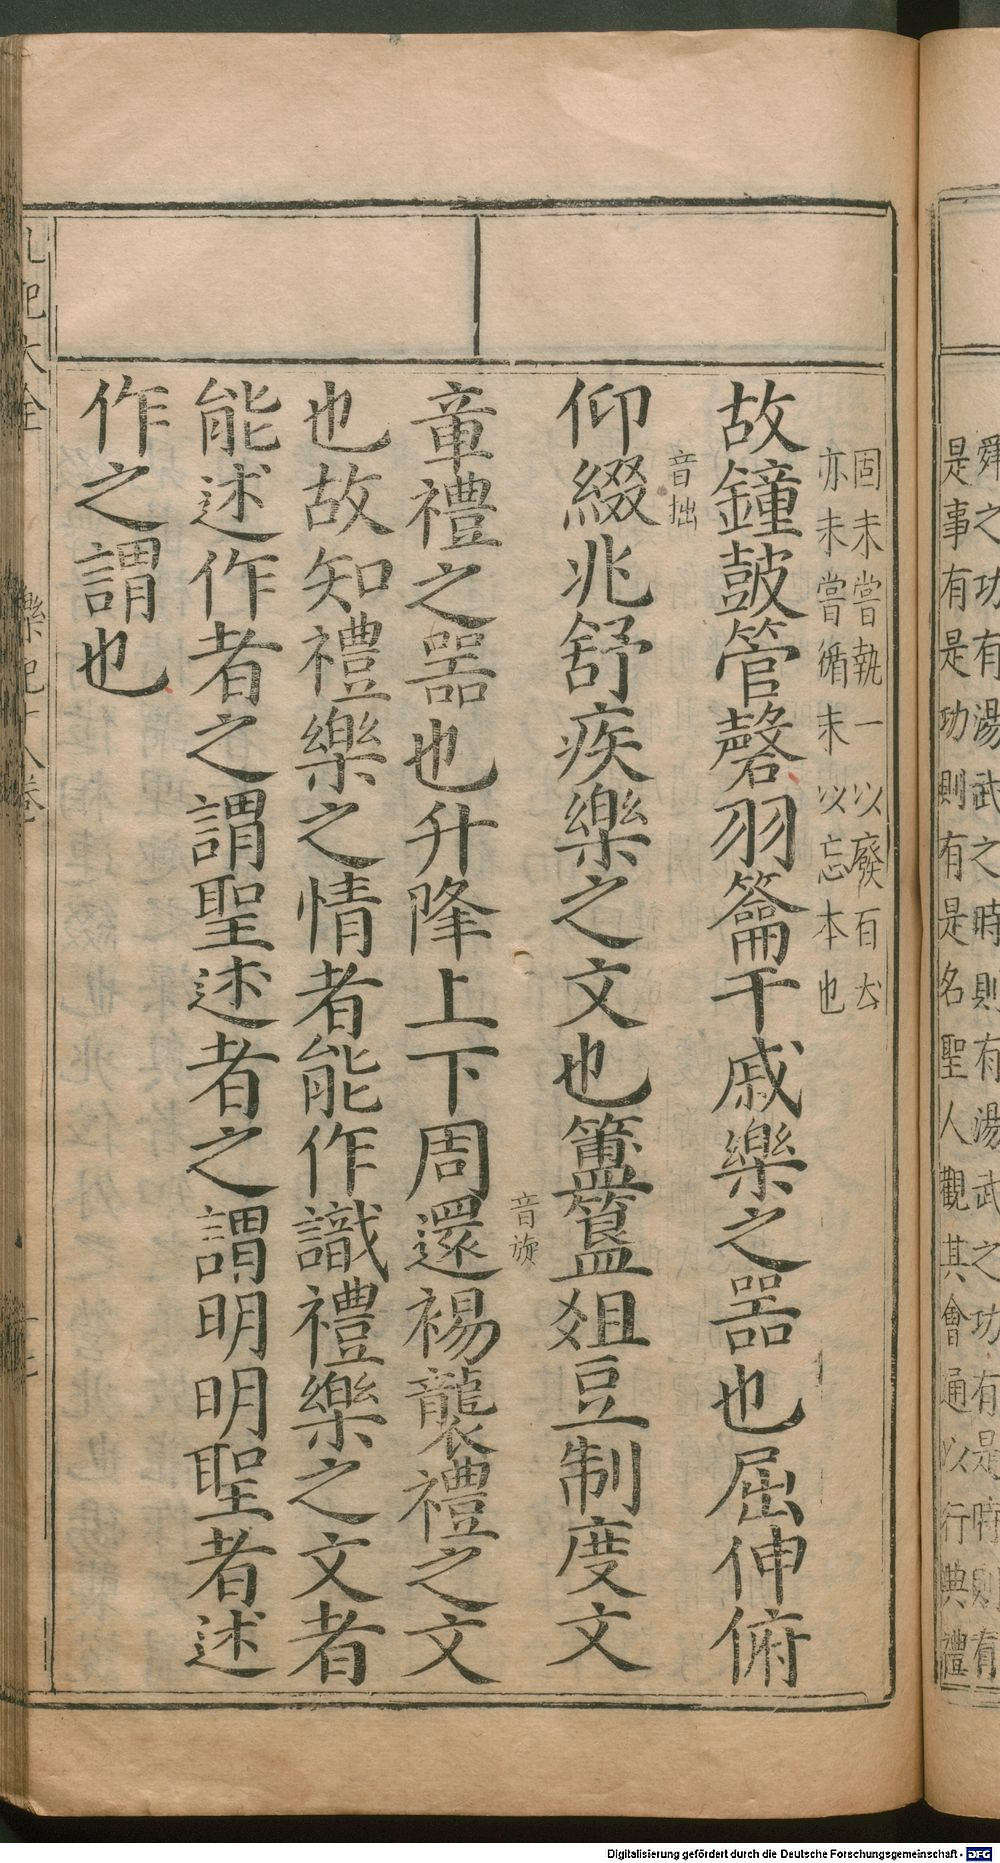 舜之功有湯武之時則有湯武之功有是時則有
是事有是功則有是名聖人觀其會通以行典禮
固未嘗執一以廢百亦
亦未嘗循末以忘本也
故鐘鼓管磬羽籥干戚樂之器也屈伸俯
音拙
仰綴兆舒疾樂之文也簠簋俎豆制度文
音旋
章禮之器也升降上下周還裼襲禮之文
也故知禮樂之情者能作識禮樂之文者
能述作者之謂聖述者之謂明明聖者述
作之謂也
禮記大全
樂記十八卷
Digitalisierung gefördert durch die Deutsche Forschungsgemeinschaft - DFG